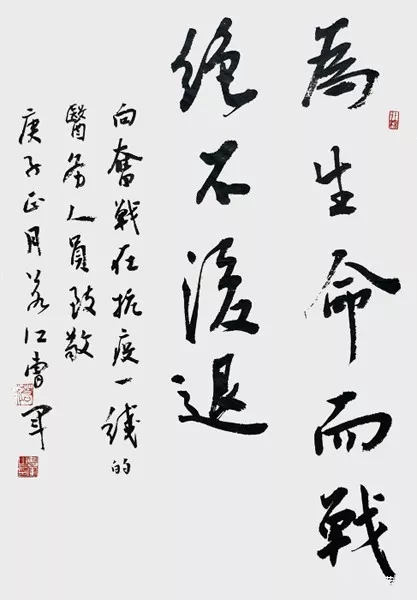 為生命而戰
絶不後退
向奮戰在抗疫一綫的
醫務人員致敬
庚子正月 江曹軍